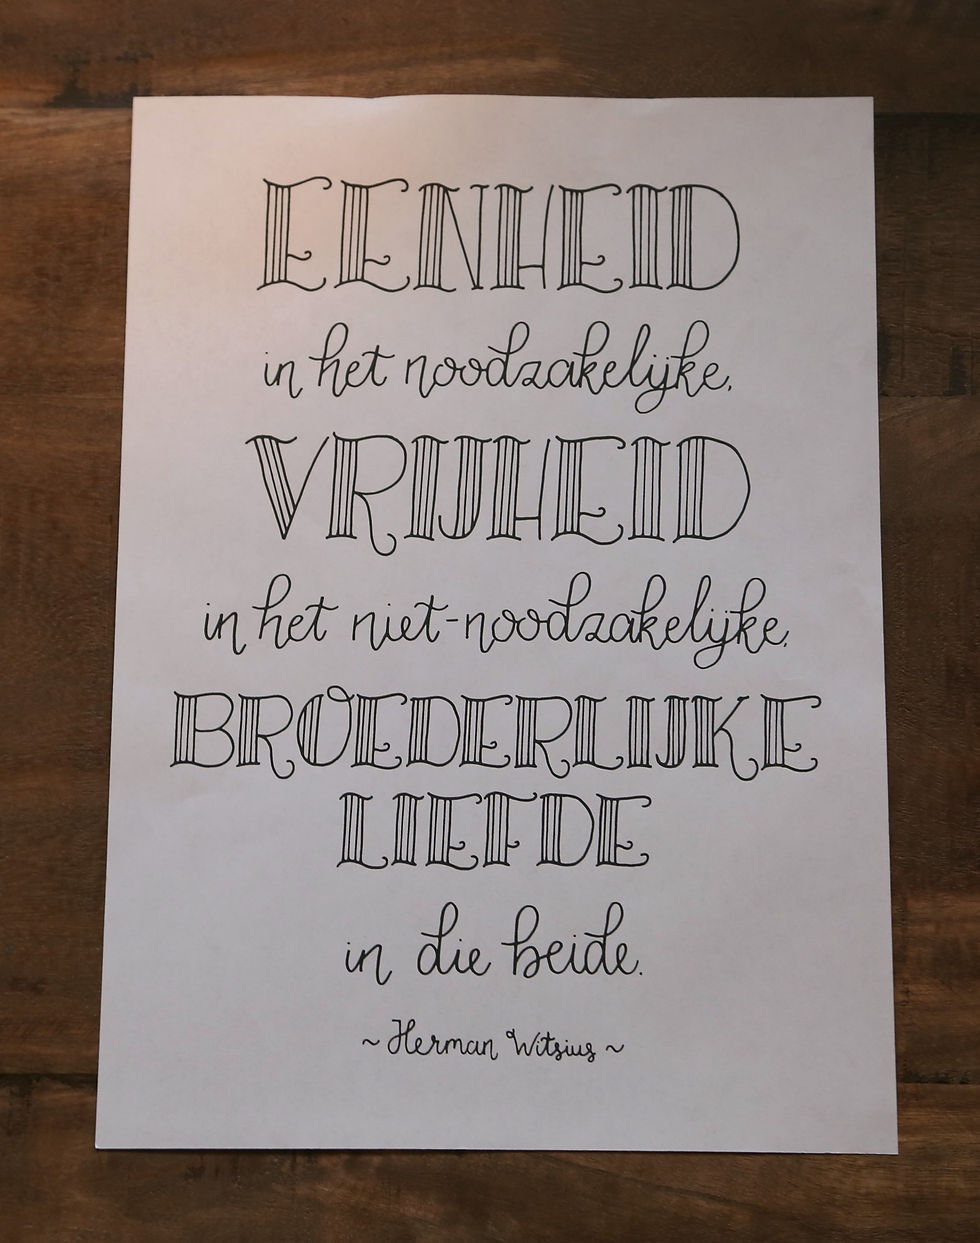 EENHEID
in het noodzakelijke,
VRIJHEID
in het niet-noodzakelijke,
BROEDERLIJKE
LIEFDE
in die beide.
~ Herman Witsius ~